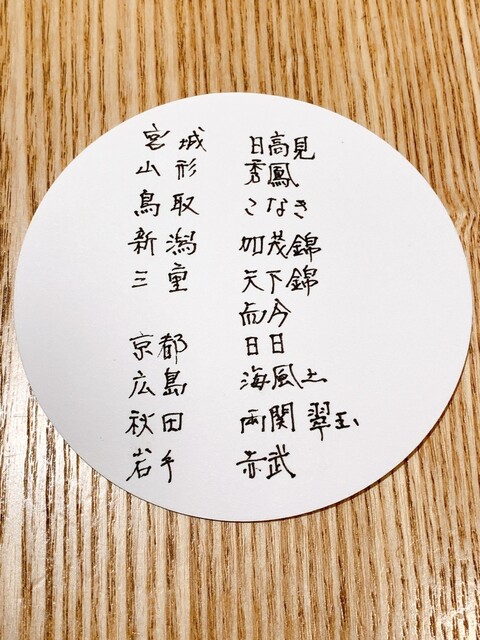 宮城 日高見
山形 秀鳳
鳥取 こなき
新潟 加茂錦
三重 天下錦
而今
京都 日日
広島 海風土
秋田 両関 翠玉
岩手 赤武